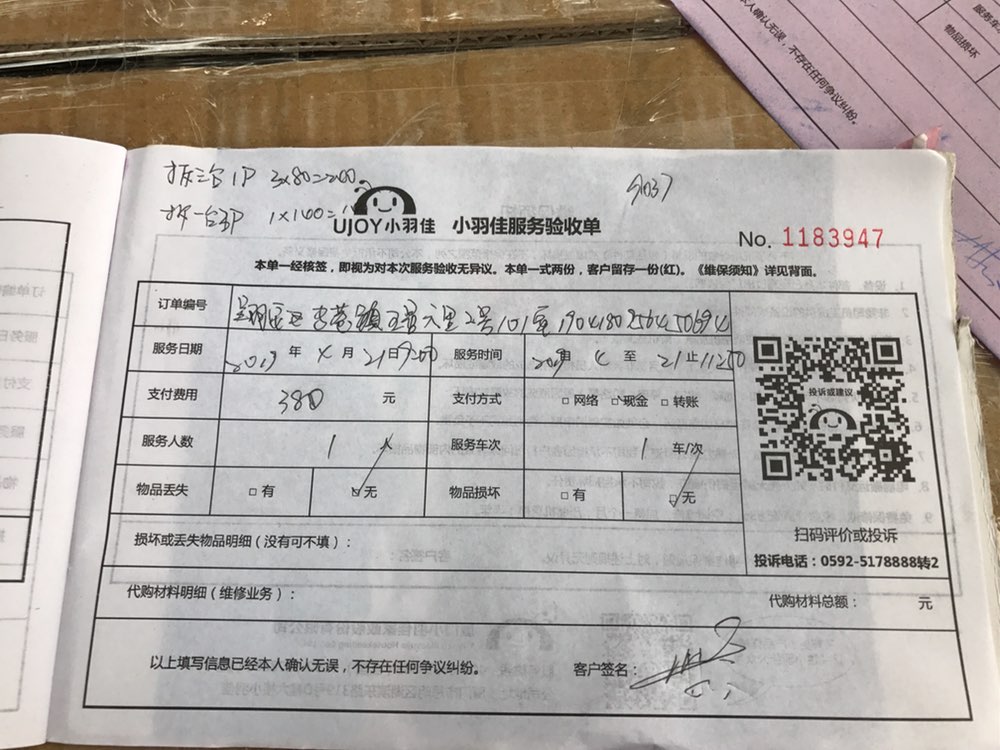 拆三台1P 3x80=200
9037
拆一台3P 1x140=
UJOY小羽佳 小羽佳服务验收单
No. 1183947
本单一经核签，即视为对本次服务验收无异议。本单一式两份，客户留存一份(红)。《维保须知》详见背面。
订单编号 翔安区 里2号101室
服务日期 2019 年 4 月 21日9:00 服务时间 2019 4 至 21止11:00
支付费用 380 元 支付方式 □网络 □现金 □转账
投诉或建议
服务人数 1 人 服务车次 1 车/次
物品丢失 □有 □无 物品损坏 □有 □无
扫码评价或投诉
损坏或丢失物品明细（没有可不填）：
投诉电话：0592-5178888转2
代购材料明细（维修业务）： 代购材料总额： 元
以上填写信息已经本人确认无误，不存在任何争议纠纷。 客户签名：
本人确认无误，不存在任何争议纠纷。
服务车
物品损坏